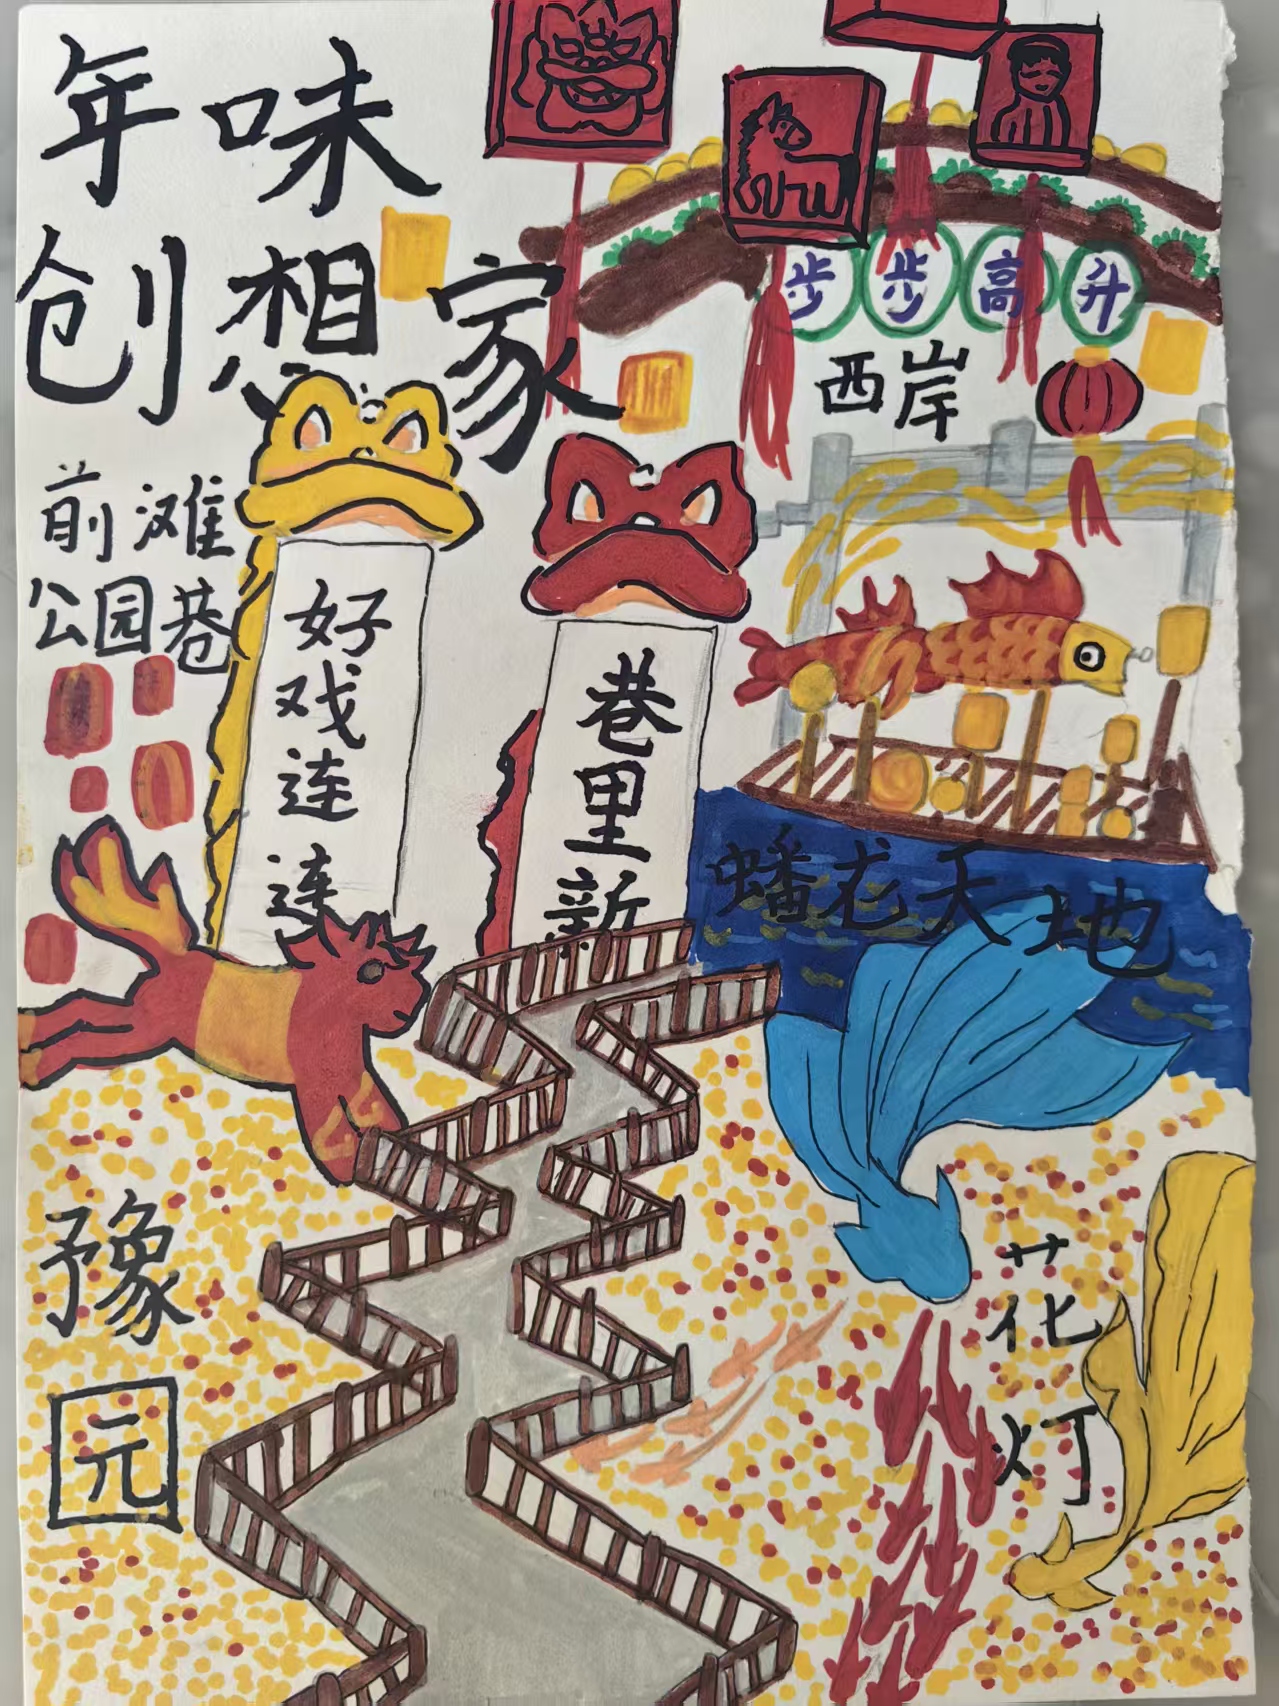 年味
创想家
步步高升
西岸
前滩
公园巷
好戏连连
巷里新
蟠龙天地
豫园
花灯